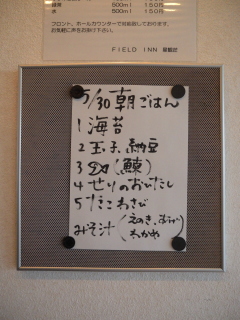 500ml 150円
500ml 150円
フロント、ホールカウンターで販売致しております。
お気軽に声をお掛け下さい。
FIELD INN
5/30 朝ごはん
1 海苔
2 玉子、納豆
3 (鰊)
4 せりのおひたし
5 たこわさび
みそ汁(えのき、あぶげ
わかめ